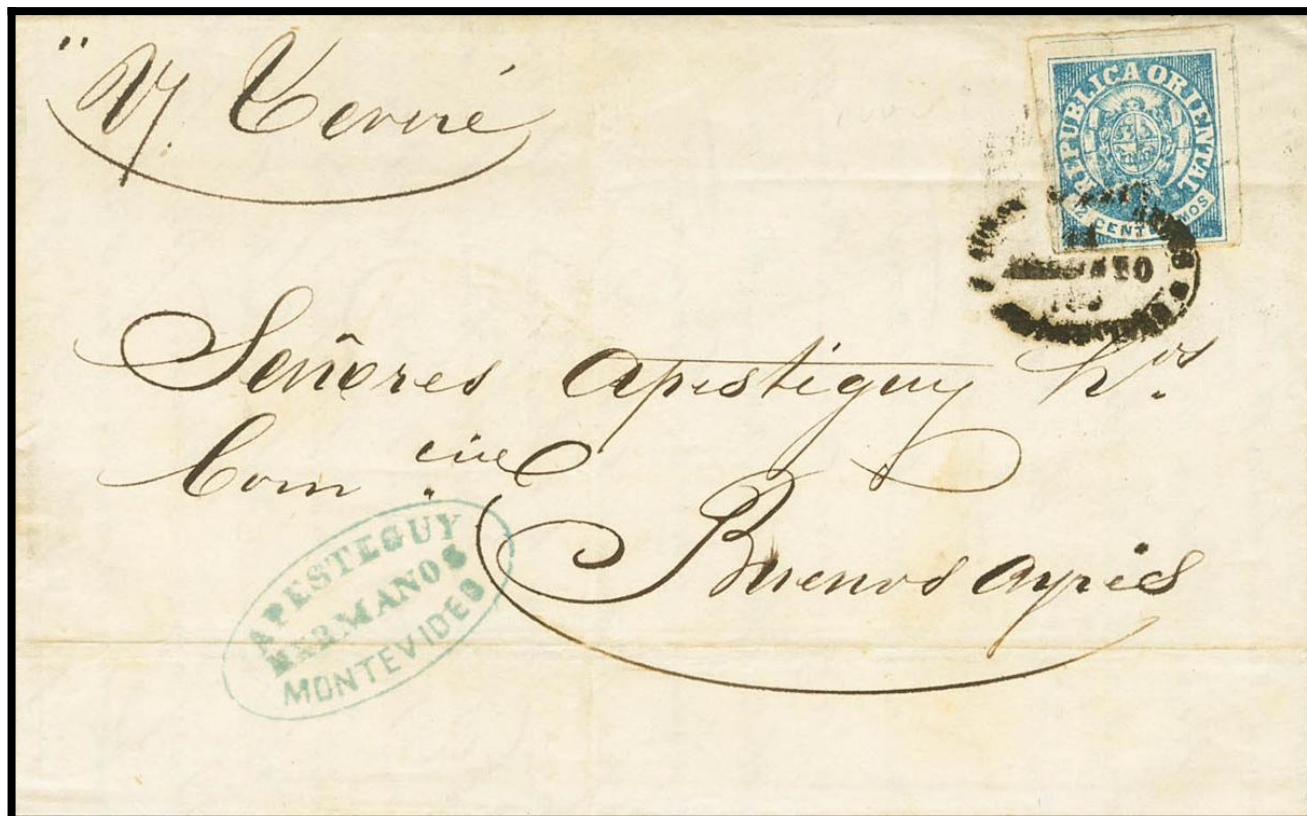 "V. 
REPUBLICA ORIENTAL
12 CENTESIMOS
Señores Apestiguy h.os
Com
Buenos Ayres
APESTEGUY
HERMANOS
MONTEVIDEO